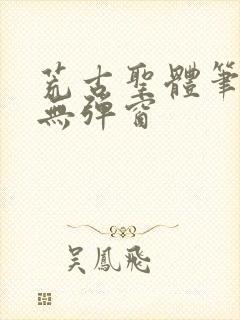 荒古聖體筆
無彈窗
吳鳳飛